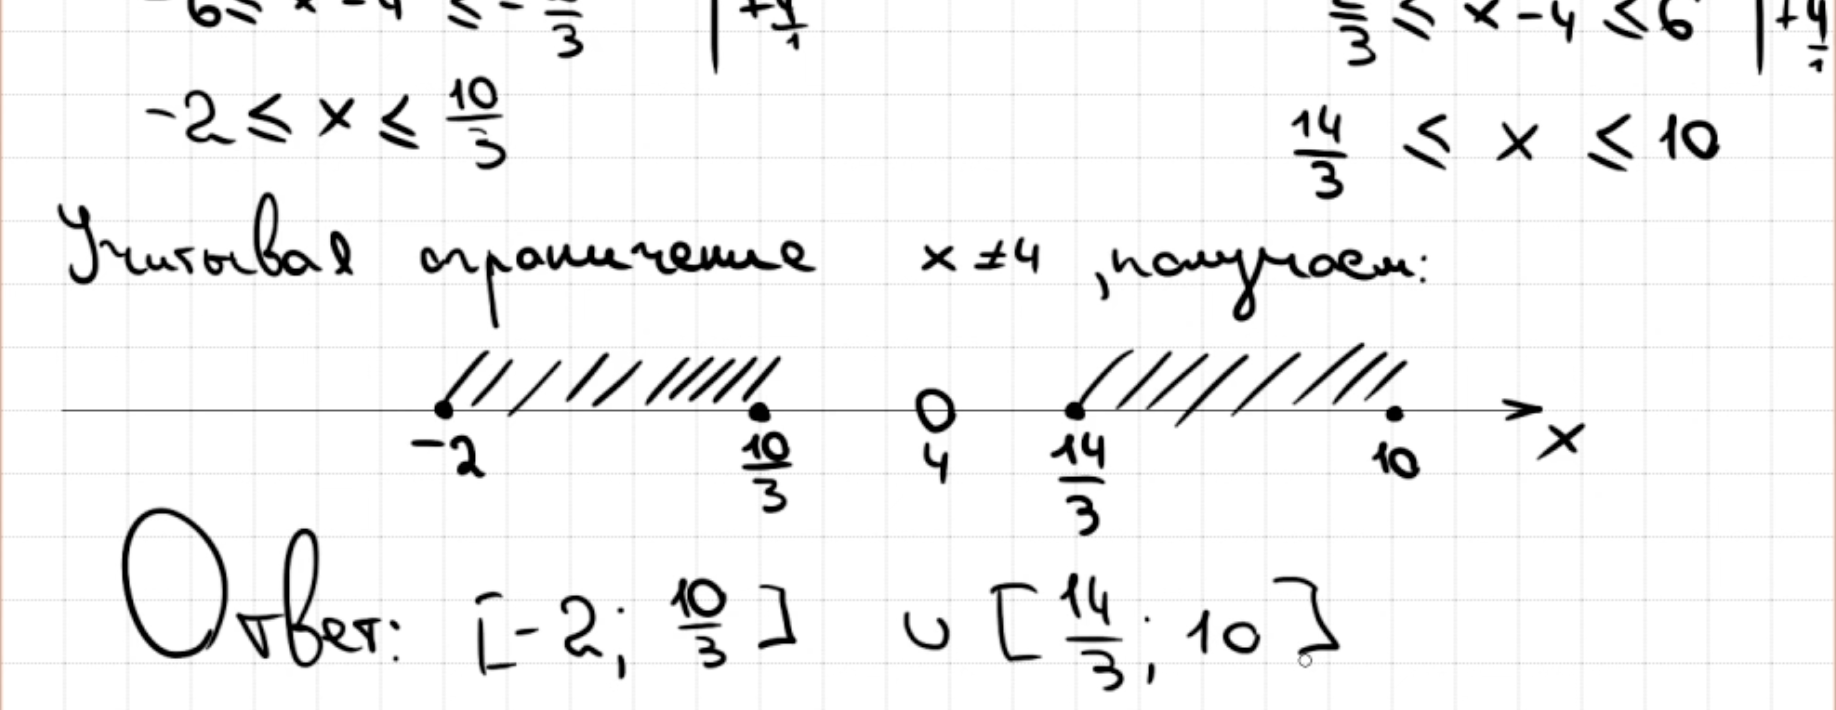 -6 ≤ x - 4 ≤ - 2/3 | + 4/1 2/3 ≤ x - 4 ≤ 6 | + 4/1
-2 ≤ x ≤ 10/3 14/3 ≤ x ≤ 10
Учитывая ограничение x ≠ 4, получаем:
-2 10/3 4 14/3 10 x
Ответ: [-2; 10/3] ∪ [14/3; 10]